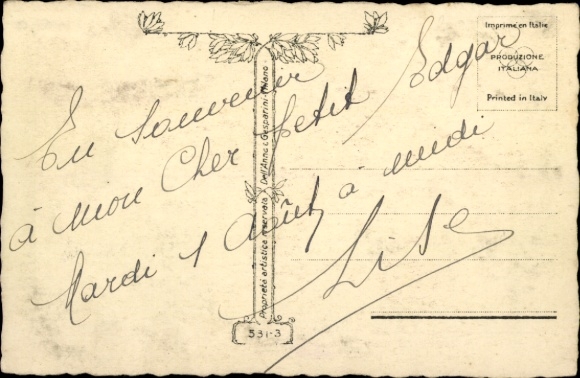 Imprimé en Italie
PRODUZIONE
ITALIANA
Printed in Italy
En souvenir
à mon Cher petit Edgar
Mardi 1 Août à midi
Lise
Proprietà artistica riservata - Dell'Anna e Gasparini - Milano
531-3